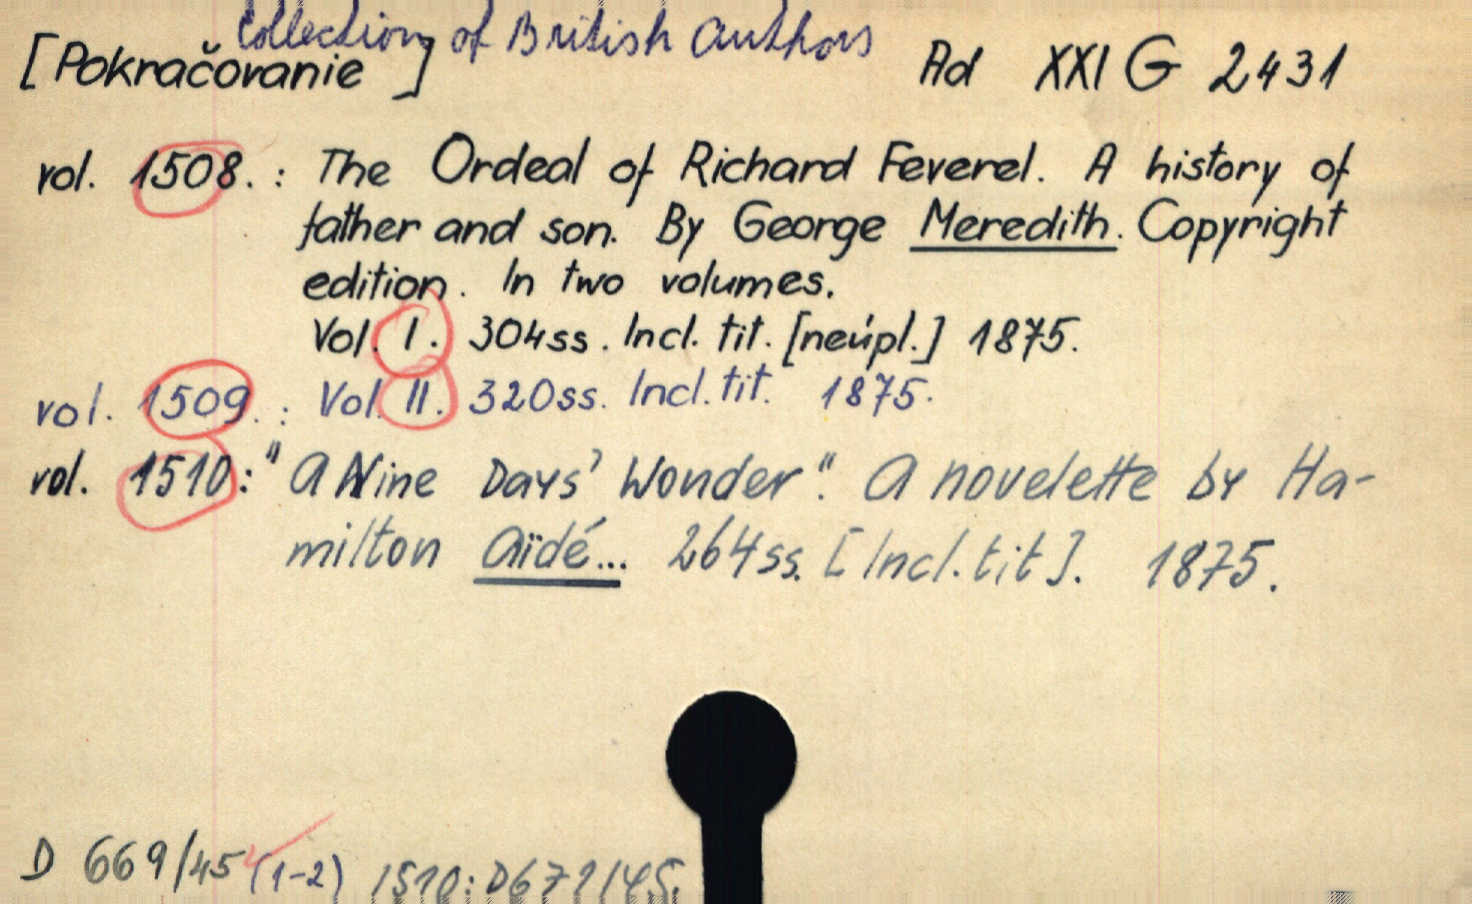 Collection of British Authors
[Pokračovanie] Ad XXI G 2431
vol. 1508. : The Ordeal of Richard Feverel. A history of
father and son. By George Meredith. Copyright
edition. In two volumes.
Vol. I. 304ss. Incl. tit. [neúpl.] 1875.
vol. 1509. : Vol. II. 320ss. Incl. tit. 1875.
vol. 1510: "A Nine Days' Wonder". A novelette by Ha-
milton Aïdé... 264ss. [Incl. tit]. 1875.
D 669/45 (1-2) 1510: D672/45.